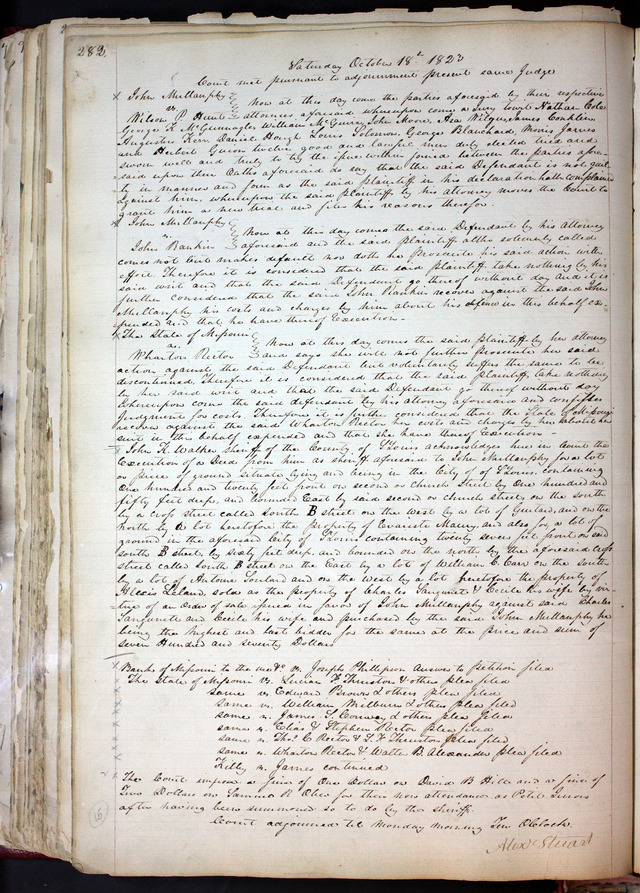 282.
Saturday October 18th 1823
Court met pursuant to adjournment present same Judge
John Mullanphy
vs.
Wilson P Hunt
Now at this day come the parties aforesaid by their respective
attornies aforesaid whereupon come a Jury towit Nathan Cole
George K McGunnagle William McGuire, John Moore, Asa Wilgus, James Conklin
Augustus Kerr Daniel Hough Louis Solomon, George Blanchard, Morris James
and Herbert Guion twelve good and lawful men duly elected tried and
sworn well and truly to try the issue within joined between the parties afore-
said upon their Oaths aforesaid do say that the said Defendant is not guil-
ty in manner and form as the said plaintiff in his declaration hath complained
against him, whereupon the said plaintiff by his attorney moves the Court to
grant him a new trial and files his reasons therefor.
John Mullanphy
v.
John Rankin
Now at this day comes the said Defendant by his attorney
aforesaid and the said plaintiff altho solemnly called
comes not but makes default nor doth he prosecute his said action with
effect. Therefore it is considered that the said plaintiff take nothing by his
said writ and that the said Defendant go thereof without day and it is
further considered that the said John Rankin recover against the said John
Mullanphy his costs and charges by him about his defence in this behalf ex-
pended and that he have thereof Execution.
The State of Missouri
vs.
Wharton Rector
Now at this day comes the said plaintiff by her attorney
and says she will not further prosecute her said
action against the said Defendant but voluntarily suffers the same to be
discontinued, Therefore it is considered that the said plaintiff, take nothing
by her said writ and that the said Defendant go thereof without day
Whereupon comes the said defendant by his attorney aforesaid and confesses
Judgment for costs. Therefore it is further considered that the State of Missouri
recover against the said Wharton Rector her costs and charges by her about her
suit in this behalf expended and that she have thereof Execution
John K. Walker sheriff of the County of St Louis acknowledges here in Court the
Execution of a Deed from him as sheriff aforesaid to John Mullanphy for a lot
or piece of ground situate lying and being in the City of St Louis, containing
One hundred and twenty feet front on second or church Street by One hundred and
fifty feet deep, and bounded East by said second or church street, on the south
by a cross street called South B street on the west by a lot of Guilard, and on the
north by a lot heretofore the property of Evariste Maury, and also for a lot of
ground in the aforesaid City of St Louis containing twenty seven feet front on said
South B street, by sixty feet deep, and bounded on the north by the aforesaid cross
street called South B street on the East by a lot of William C. Carr on the south
by a lot of Antoine Soulard and on the west by a lot heretofore the property of
Alexis Leland, sold as the property of Charles Sanguinet & Cecile his wife by vir-
tue of an Order of sale issued in favor of John Mullanphy against said Charles
Sanguinett and Cecile his wife and purchased by the said John Mullanphy he
being the highest and last bidder for the same at the price and sum of
seven Hundred and seventy Dollars
Bank of Missouri to the use &c vs. Joseph Phillipson Answer to Petition filed
The State of Missouri vs. Lucian F Thruston & others plea filed
same vs. Edward Brown & others plea filed
same vs. William Milburn & others plea filed
same vs. James S. Conway & others plea filed
same vs. Elias & Stephen Rector plea filed
same vs. Thos. C Rector & L. F. Thruston plea filed
same vs. Wharton Rector & Walter B. Alexander plea filed
Kelly vs. James continued
The Court impose a fine of One Dollar on David B Hill and a fine of
Two Dollars on Samuel R Ober for their non attendance as Petit Jurors
after having been summoned so to do by the sheriff.
Court adjourned til Monday morning Ten OClock.
Alex Stuart
16